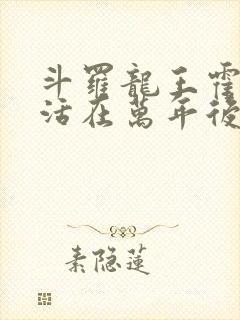 斗羅龍王霍
活在萬年後
素隐蓮